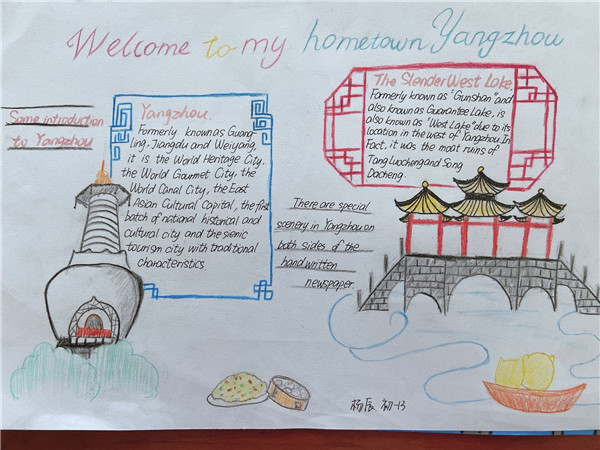 Welcome to my hometown Yangzhou
Some introduction
to Yangzhou
Yangzhou.
Formerly known as Guang-
ling, Jiangdu and Weiyang,
it is the World Heritage City.
the World Gourmet City, the
World Canal City, the East
Asian Cultural Capital, the first
batch of national historical and
cultural city and the scenic
tourism city with traditional
characteristics
The Slender West Lake.
Formerly known as "Gunshan" and
also known as Guarantee Lake, is
also known as "West Lake" due to its
location in the west of Yangzhou. In
Fact, it was the moat ruins of
Tang Luocheng and Song
Dacheng.
There are special
scenery in Yangzhou on
both sides of the
handwritten
newspaper.
初一13